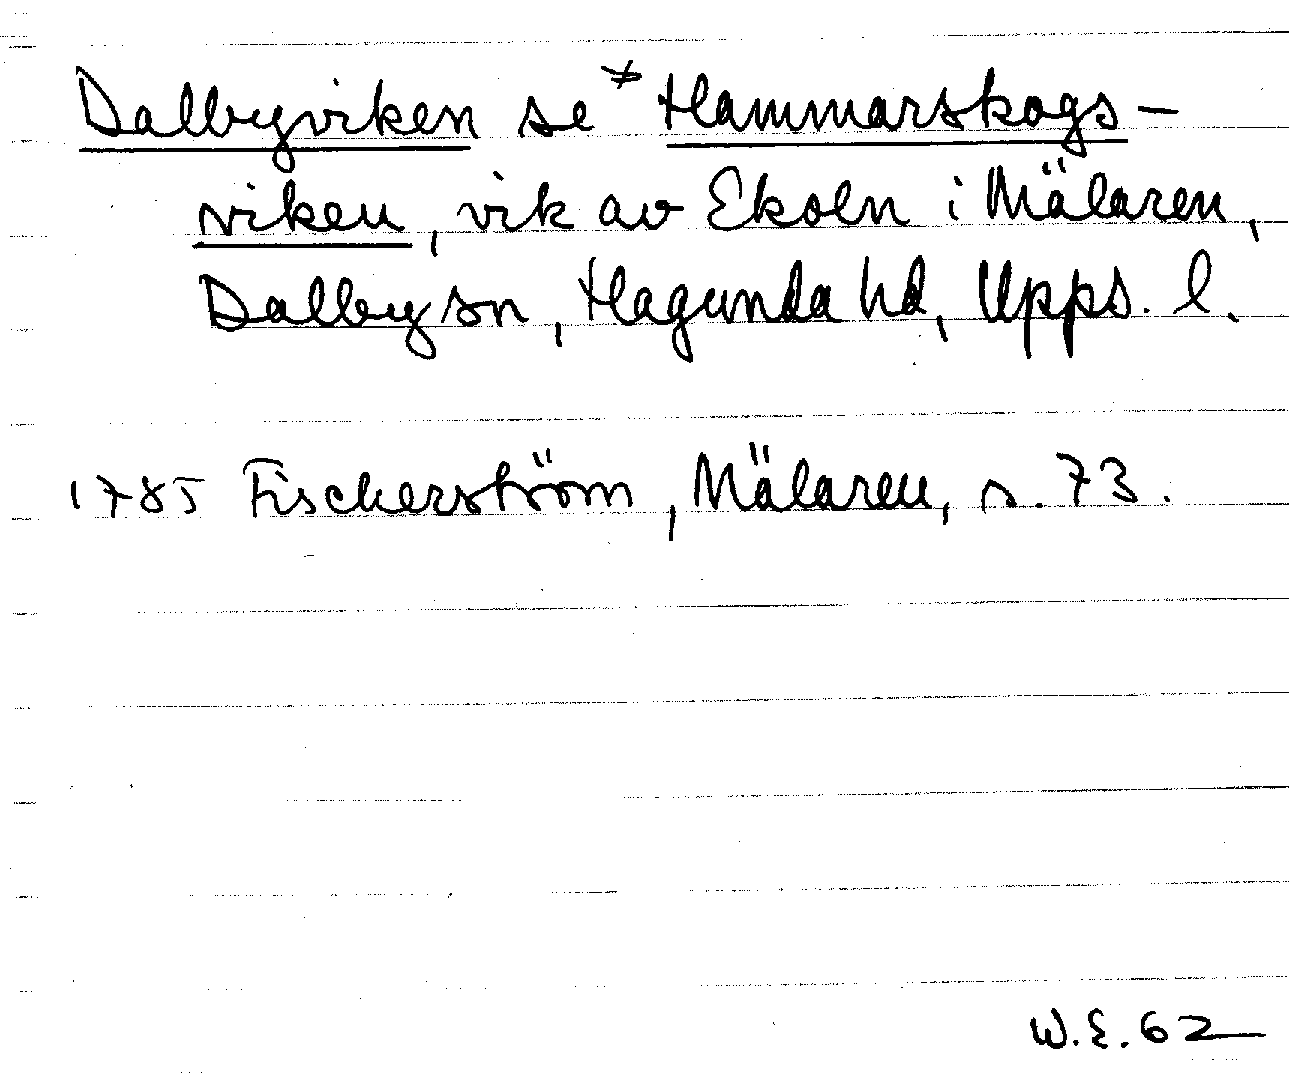 Dalbyviken se *Hammarskogs-
viken, vik av Ekoln i Mälaren,
Dalby sn, Hagunda hd, Upps. l.
1785 Fischerström, Mälaren, s. 73.
W.E. 62